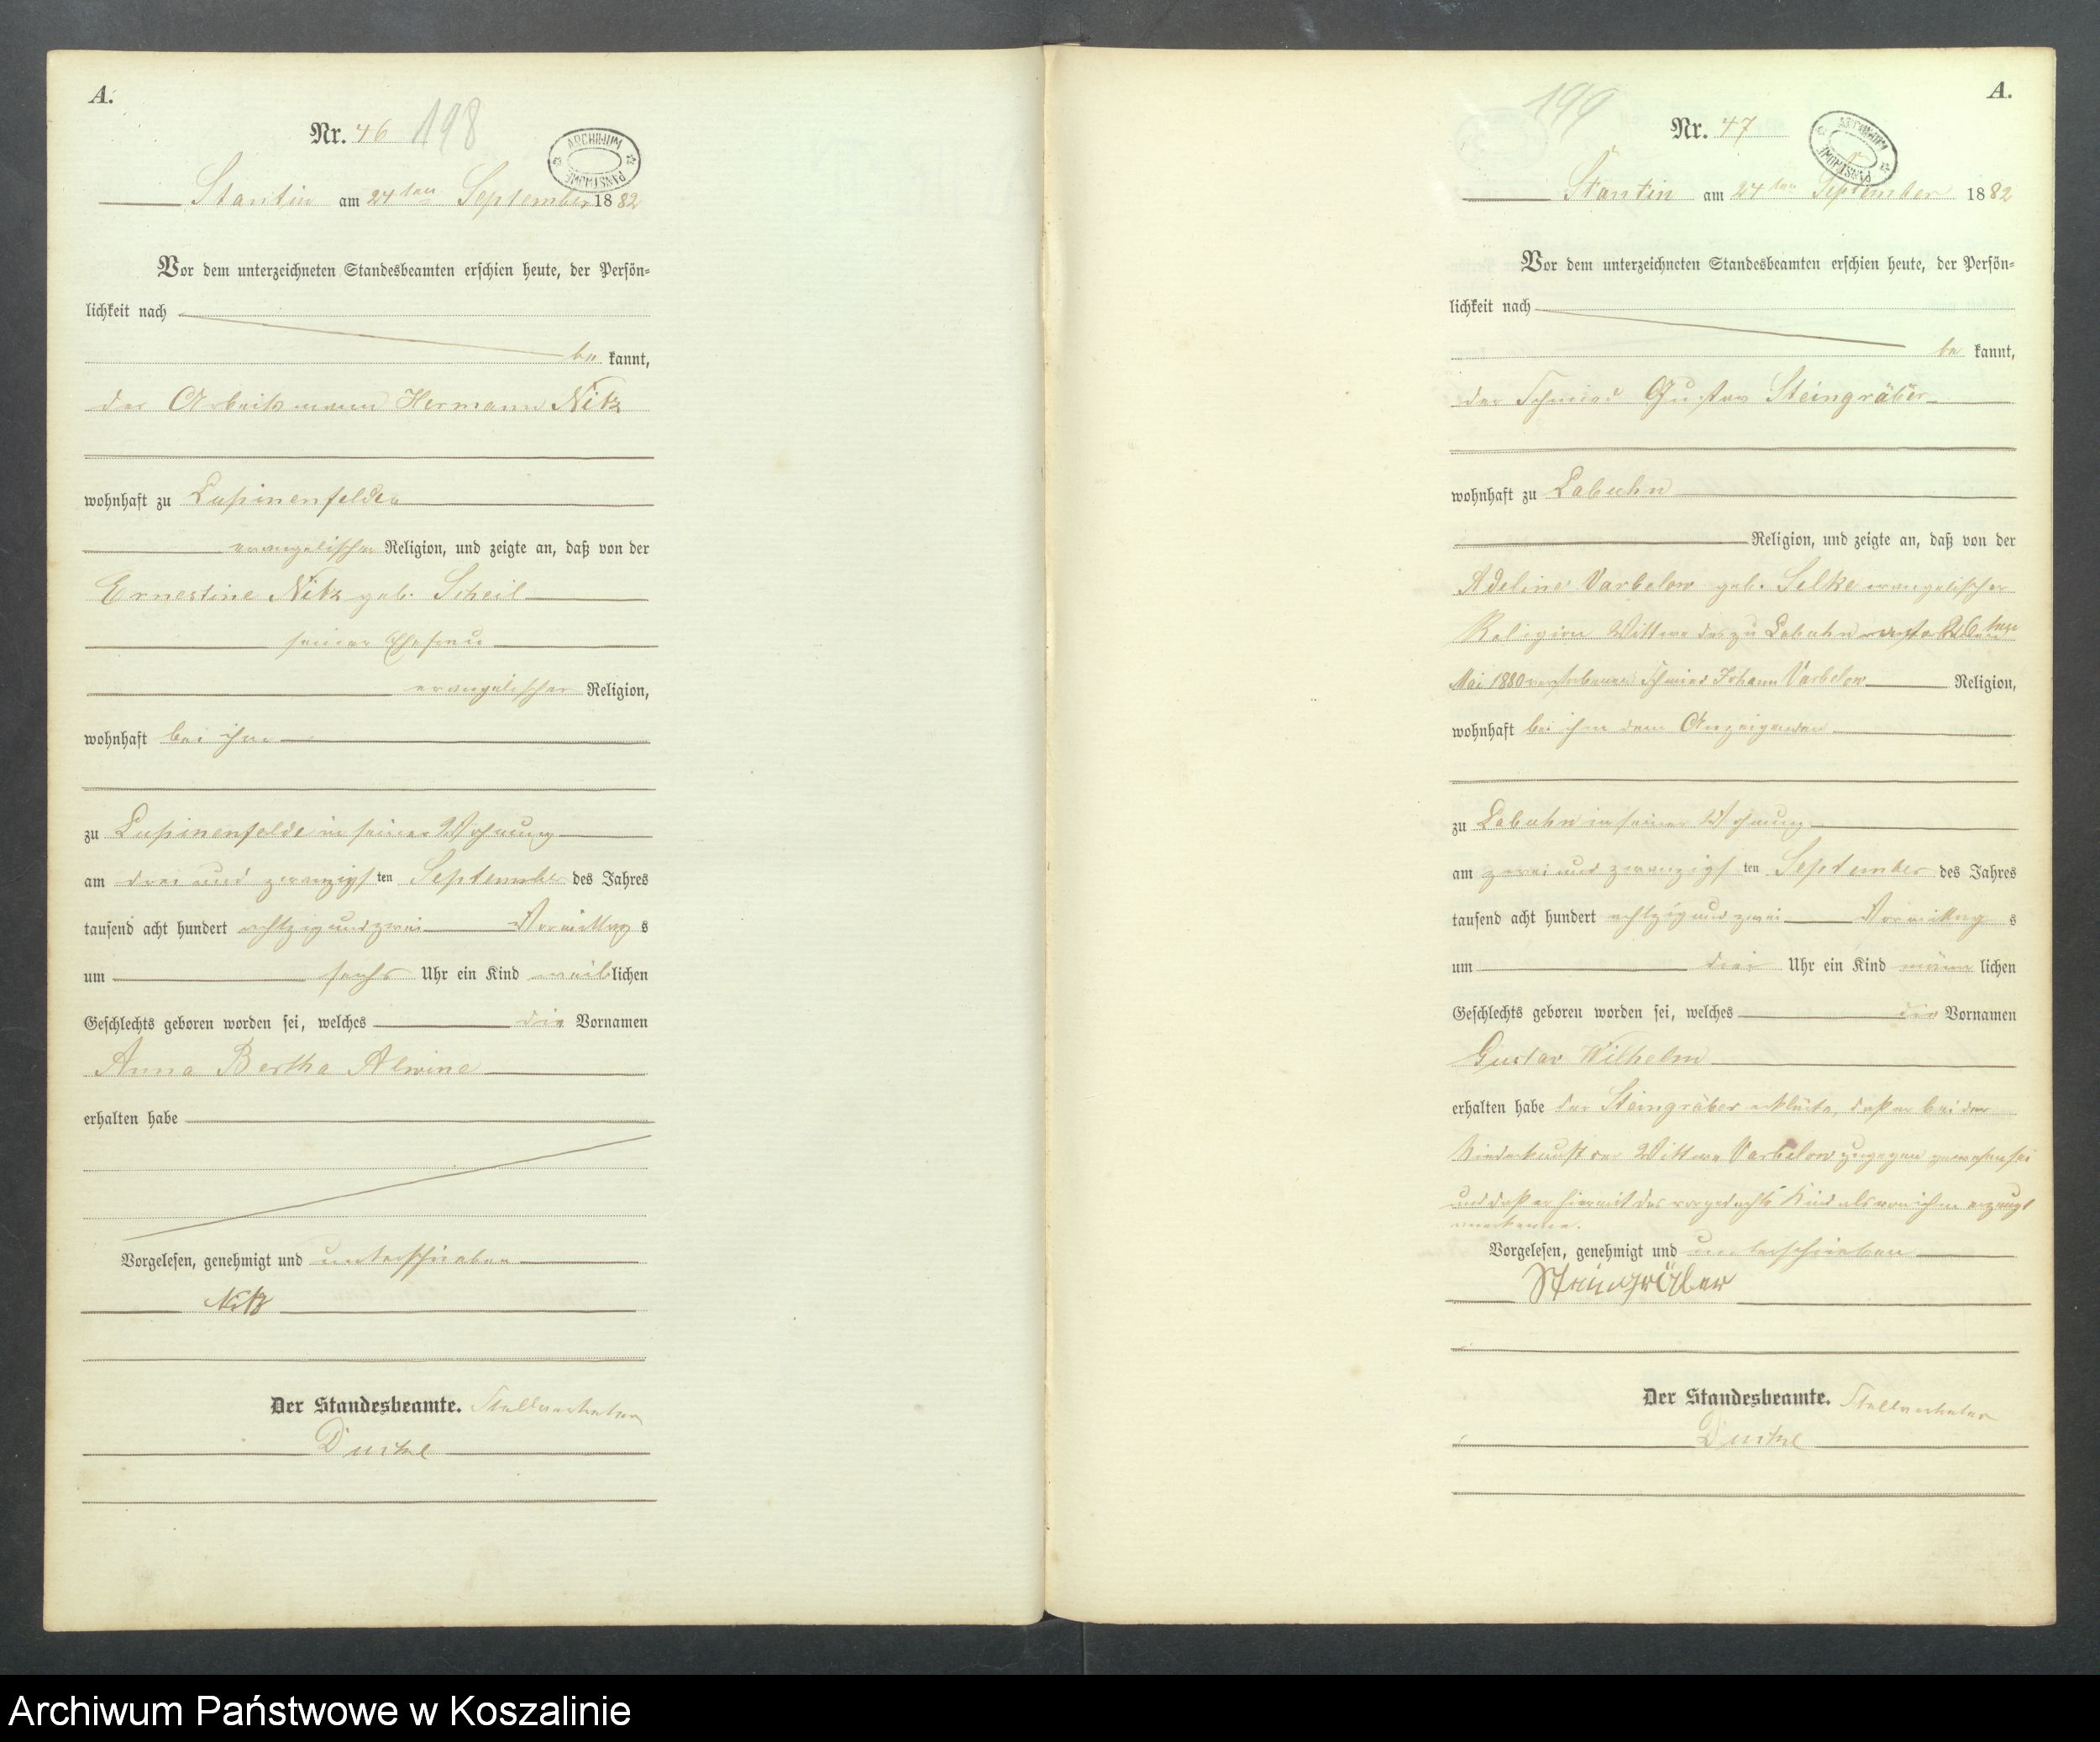 A.
Nr. 46 198
ARCHIWUM PAŃSTWOWE
Stantin am 24ten September 1882
Vor dem unterzeichneten Standesbeamten erschien heute, der Persön-
lichkeit nach
be kannt,
der Arbeitsmann Hermann Nitz
wohnhaft zu Lupinenfelde
evangelischer Religion, und zeigte an, daß von der
Ernestine Nitz geb. Scheil
seiner Ehefrau
evangelischer Religion,
wohnhaft bei ihm
zu Lupinenfelde in seiner Wohnung
am drei und zwanzigsten September des Jahres
tausend acht hundert achtzig und zwei Vormittags
um sechs Uhr ein Kind weiblichen
Geschlechts geboren worden sei, welches die Vornamen
Anna Bertha Alwine
erhalten habe
Vorgelesen, genehmigt und unterschrieben
Nitz
Der Standesbeamte. Stellvertreter
A.
199
Nr. 47
ARCHIWUM PAŃSTWOWE
Stantin am 24ten September 1882
Vor dem unterzeichneten Standesbeamten erschien heute, der Persön-
lichkeit nach
be kannt,
der Schmied Gustav Steingräber
wohnhaft zu Labuhn
Religion, und zeigte an, daß von der
Adeline Varbelow geb. Selke evangelischer
Religion Wittwe des zu Labuhn am 26ten
Mai 1880 verstorbenen Schmied Johann Varbelow Religion,
wohnhaft bei ihm dem Anzeigenden
zu Labuhn in seiner Wohnung
am zwei und zwanzigsten September des Jahres
tausend acht hundert achtzig und zwei Vormittags
um drei Uhr ein Kind männlichen
Geschlechts geboren worden sei, welches die Vornamen
Gustav Wilhelm
erhalten habe der Steingräber erklärte, daß er bei der
Niederkunft der Wittwe Varbelow zugegen gewesen sei
und daß er hiermit das vorgedachte Kind als von ihm erzeugt
anerkenne.
Vorgelesen, genehmigt und unterschrieben
Steingräber
Der Standesbeamte. Stellvertreter
Archiwum Państwowe w Koszalinie